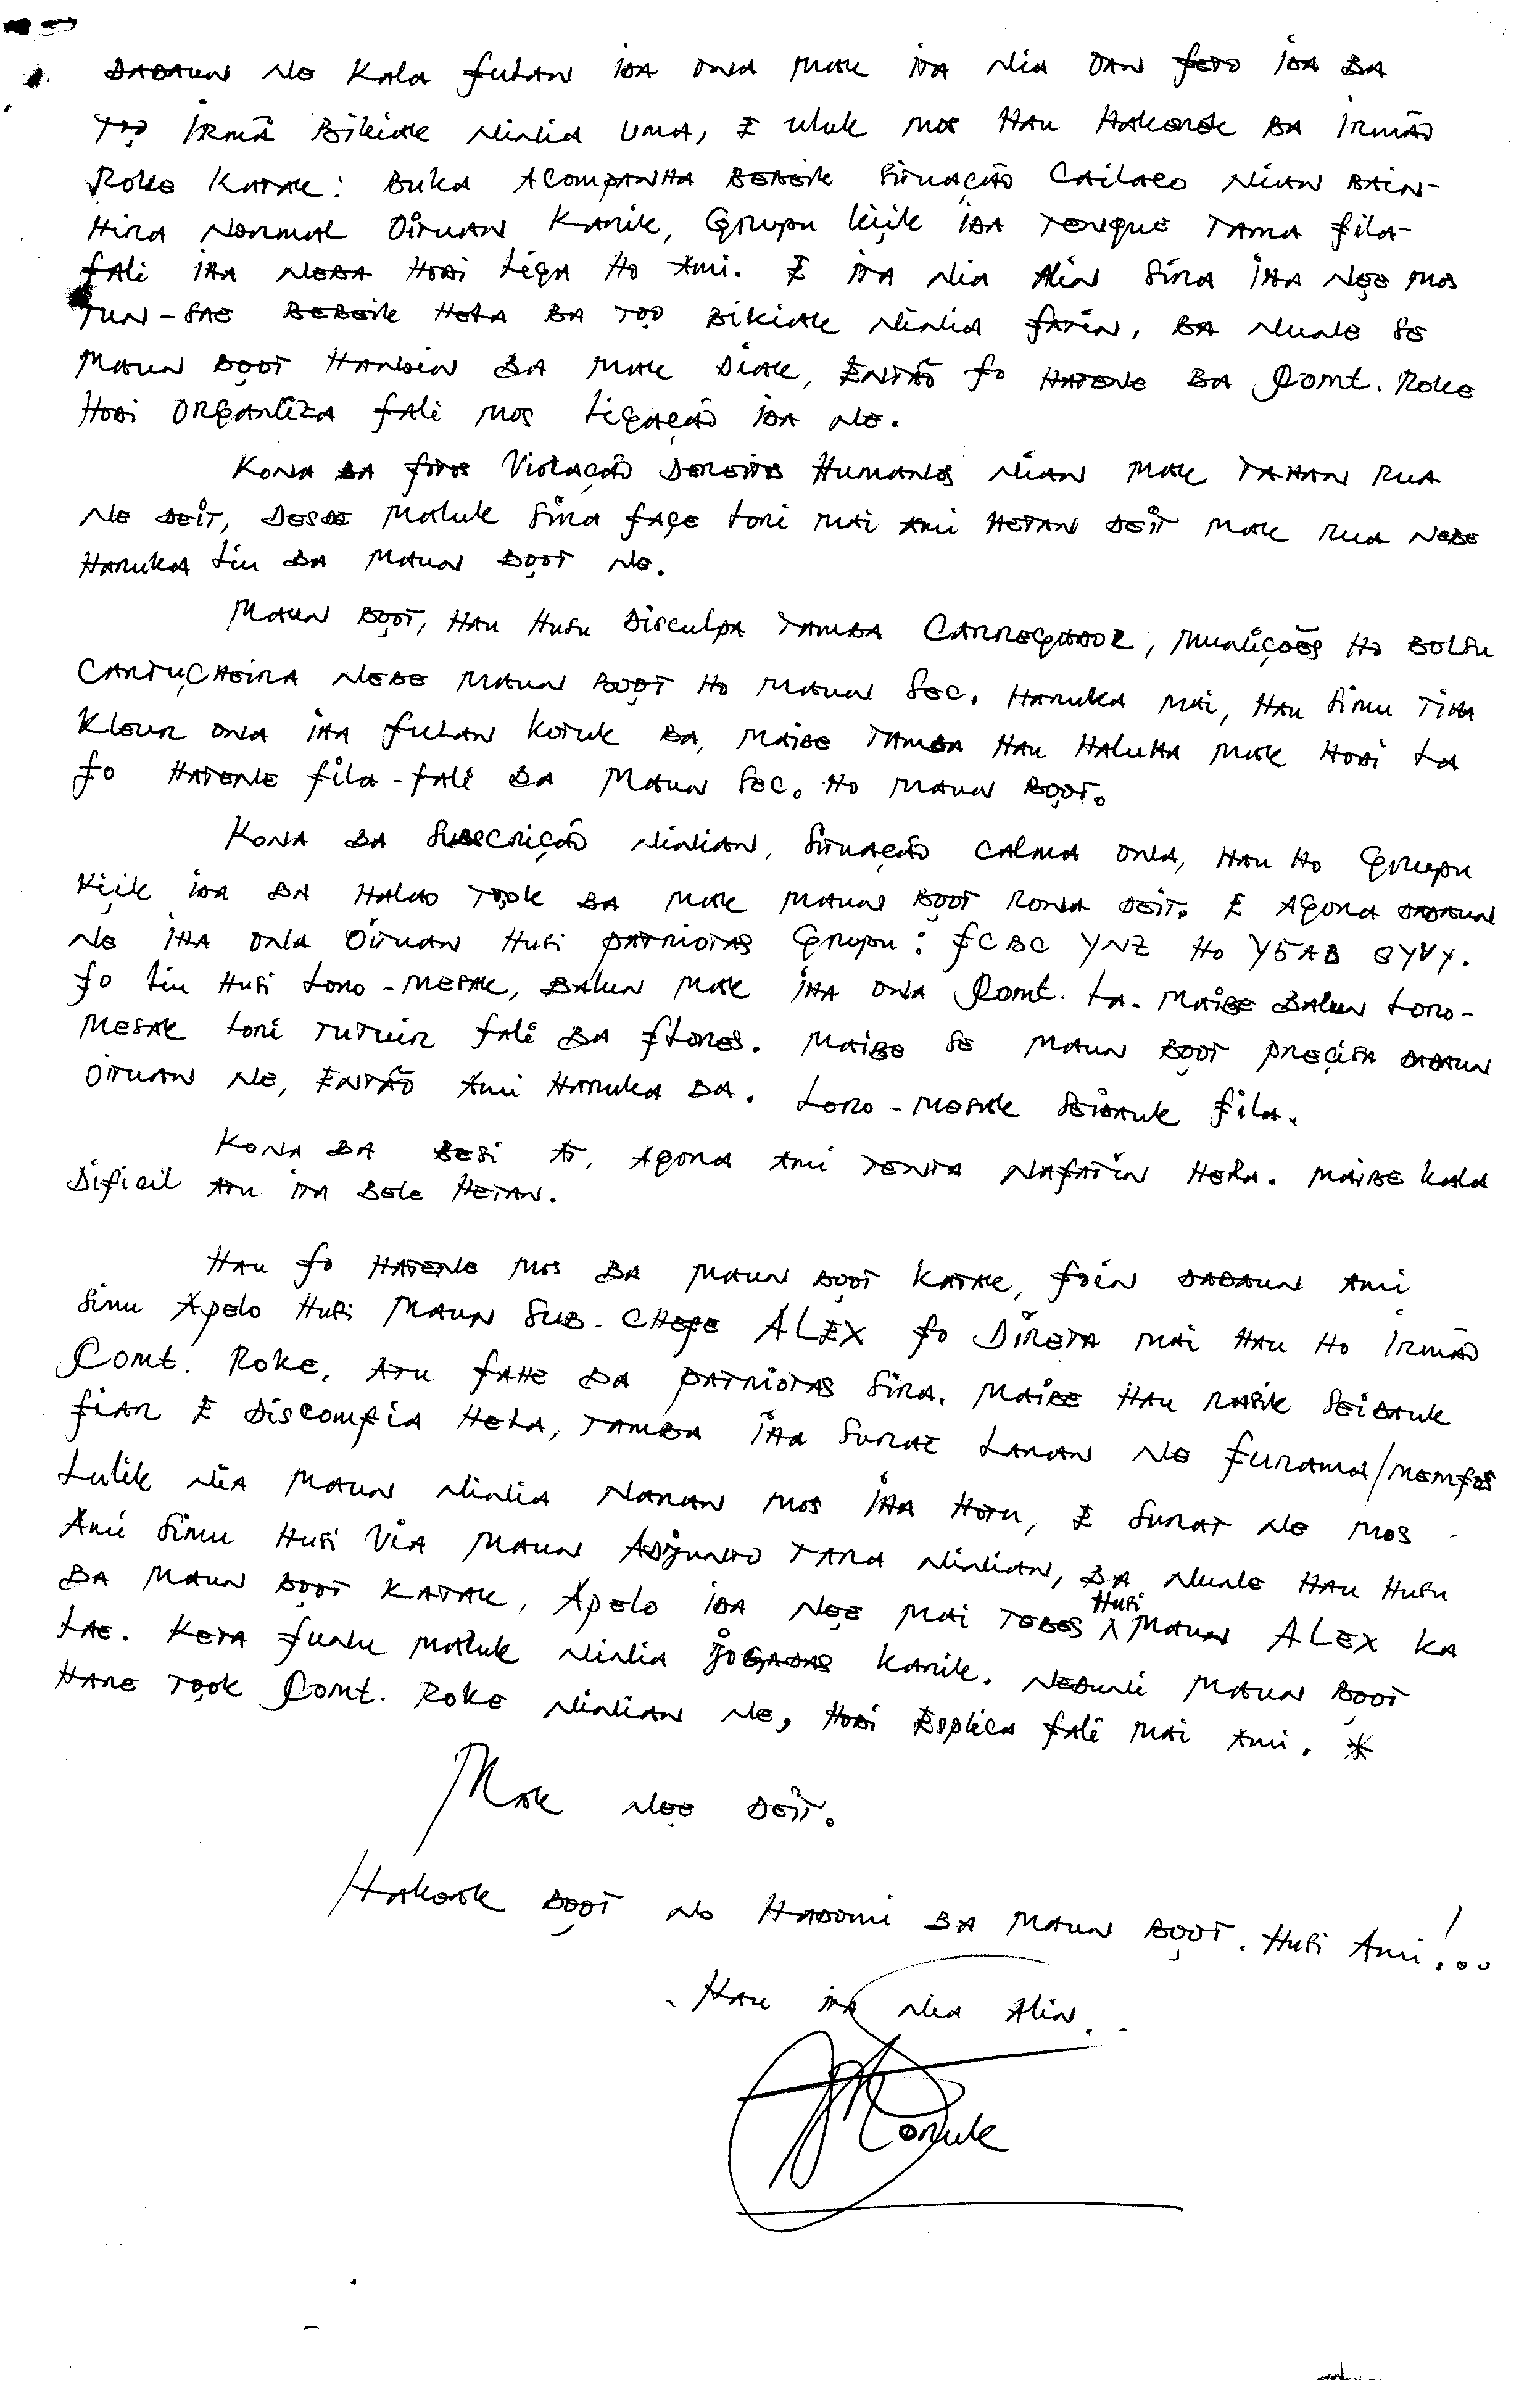 DADAUN NE KALA FULAN IDA ONA MAK ITA NIA OAN FETO IDA BA
TOO IRMÃ BIKIAK NINIA UMA, E ULUK MOS HAU HAKEREK BA IRMÃO
ROKE KATAK: BUKA ACOMPANHA BEBEIK SITUAÇÃO CAILACO NIAN BAIN-
HIRA NORMAL OITUAN KARIK, GRUPU KIIK IDA TENQUE TAMA FILA-
FALI IHA NEBA HODI LIGA HO AMI. E ITA NIA ALIN SIRA IHA NEE MOS
TUN-SAE BEBEIK HELA BA TOO BIKIAK NINIA FATIN, BA NUNE SE
MAUN BOOT HANOIN BA MAK DIAK, ENTÃO FO HATENE BA COMT. ROKE
HODI ORGANIZA FALI MOS LIGAÇÃO IDA NE.
KONA BA FOTOS VIOLAÇÃO DEREITOS HUMANOS NIAN MAK TAHAN RUA
NE DEIT, DESDE MALUK SIRA FAÇE LORI MAI AMI HETAN DEIT MAK RUA NEBE
HARUKA LIU BA MAUN BOOT NE.
MAUN BOOT, HAU HUSU DISCULPA TAMBA CARREGUADOR, MUNIÇÕES HO BOLSU
CARTUÇHEIRA NEBE MAUN BOOT HO MAUN SEC. HARUKA MAI, HAU SIMU TIHA
KLEUR ONA IHA FULAN KOTUK BA, MAIBE TAMBA HAU HALUHA MAK HODI LA
FO HATENE FILA-FALI BA MAUN SEC. HO MAUN BOOT.
KONA BA SUBSCRIÇÃO NINIAN, SITUAÇÃO CALMA ONA, HAU HO GRUPU
KIIK IDA BA HALAO TOOK BA MAK MAUN BOOT RONA DEIT. E AGORA DADAUN
NE IHA ONA OITUAN HUSI PATRIOTAS GRUPU: FCBC YNZ HO Y5AB QYVY.
FO LIU HUSI LORO-MESAK, BALUN MAK IHA ONA COMT. LA. MAIBE BALUN LORO-
MESAK LORI TUTUIR FALI BA FLORES. MAIBE SE MAUN BOOT PREÇISA DADAUN
OITUAN NE, ENTÃO AMI HARUKA BA. LORO-MESAK SEIDAUK FILA.
KONA BA BESI AT, AGORA AMI TENTA NAFATIN HELA. MAIBE KALA
DIFICIL ATU ITA BELE HETAN.
HAU FO HATENE MOS BA MAUN BOOT KATAK, FOIN DADAUN AMI
SIMU APELO HUSI MAUN SUB. CHEFE ALEX FO DIRETA MAI HAU HO IRMÃO
COMT. ROKE, ATU FAHE BA PATRIOTAS SIRA. MAIBE HAU RASIK SEIDAUK
FIAR E DISCOMFIA HELA, TAMBA IHA SURAT LARAN NE FURAMA/MEMFOS
LULIK NIA MAUN NINIA NARAN MOS IHA HOTU, E SURAT NE MOS
AMI SIMU HUSI VIA MAUN ADJUNTO TARA NINIAN, BA NUNE HAU HUSU
BA MAUN BOOT KATAK, APELO IDA NEE MAI TEBES HUSI MAUN ALEX KA
LAE. KETA FUNU MALUK NINIA JOGADAS KARIK. NEDUNI MAUN BOOT
HARE TOOK COMT. ROKE NINIAN NE, HODI ESPLICA FALI MAI AMI. *
MAK NEE DEIT.
HAKOAK BOOT NO HADOMI BA MAUN BOOT. HUSI AMI!...
- HAU ITA NIA ALIN.-